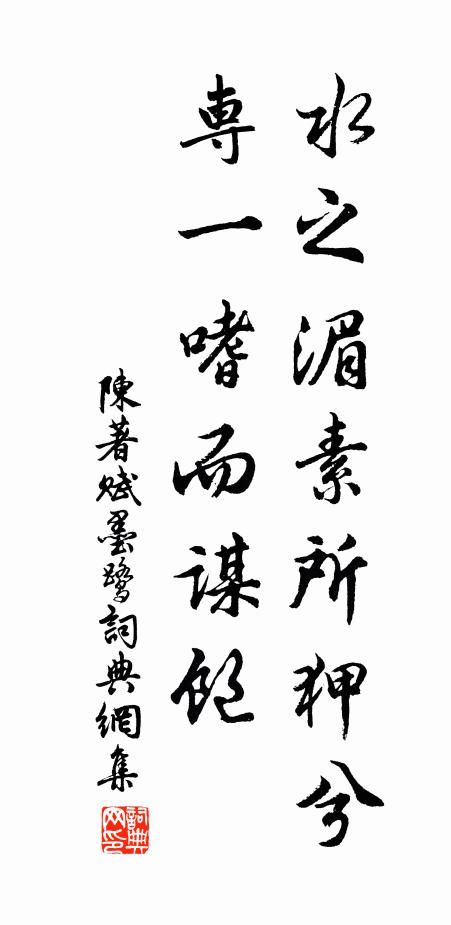 水之湄素所狎兮
専一嗜而謀飽
陳著賦墨鷺詞典網集
詞典网印